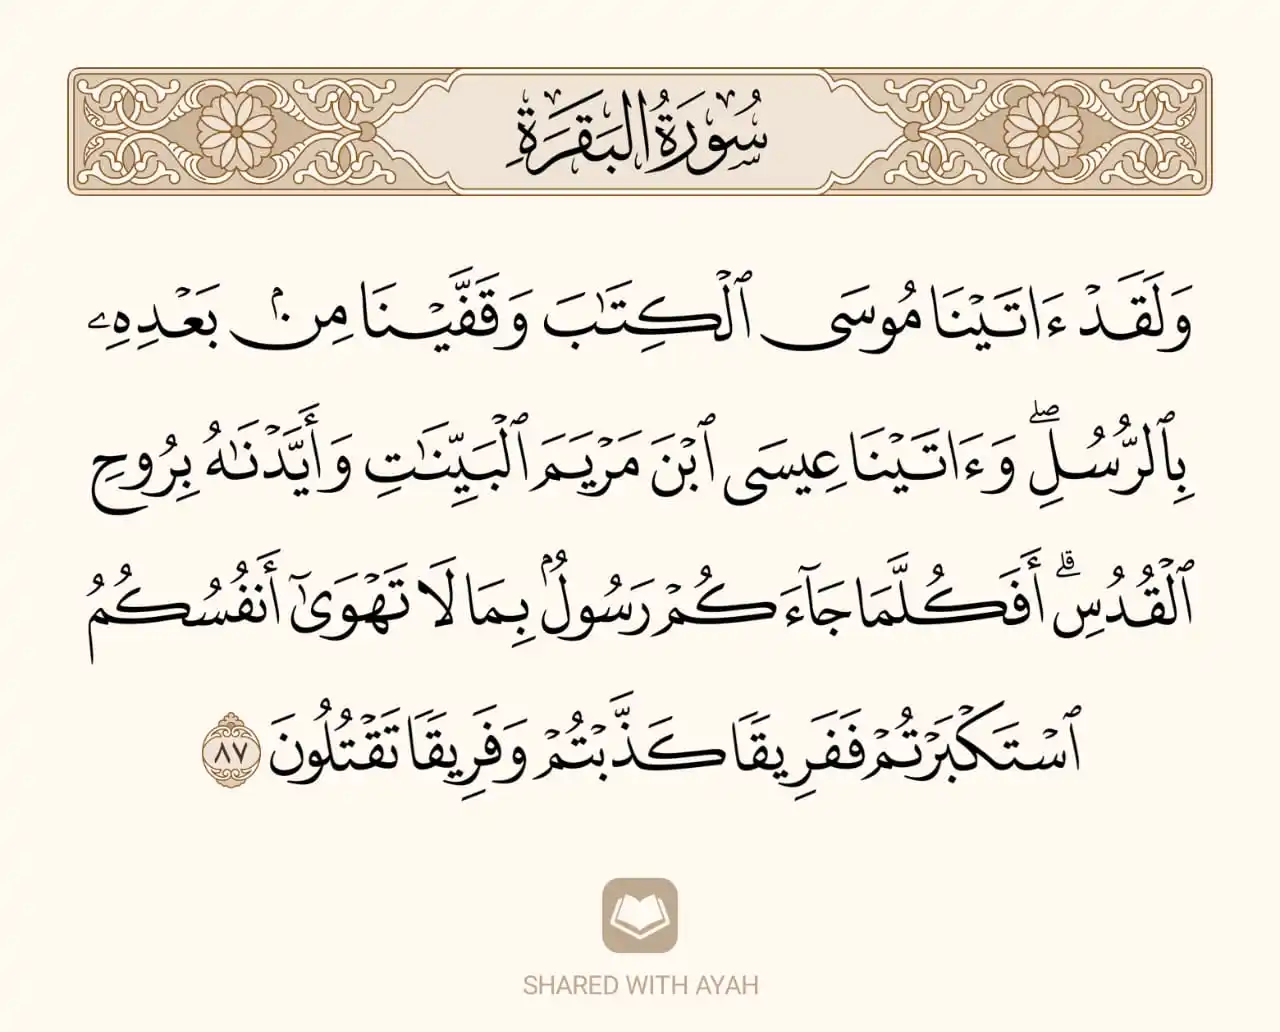 سُورَةُ البَقَرَةِ
وَلَقَدْ ءَاتَيْنَا مُوسَى ٱلْكِتَٰبَ وَقَفَّيْنَا مِنۢ بَعْدِهِۦ
بِٱلرُّسُلِۖ وَءَاتَيْنَا عِيسَى ٱبْنَ مَرْيَمَ ٱلْبَيِّنَٰتِ وَأَيَّدْنَٰهُ بِرُوحِ
ٱلْقُدُسِۗ أَفَكُلَّمَا جَآءَكُمْ رَسُولٌۢ بِمَا لَا تَهْوَىٰٓ أَنفُسُكُمُ
ٱسْتَكْبَرْتُمْ فَفَرِيقًا كَذَّبْتُمْ وَفَرِيقًا تَقْتُلُونَ ٨٧
SHARED WITH AYAH